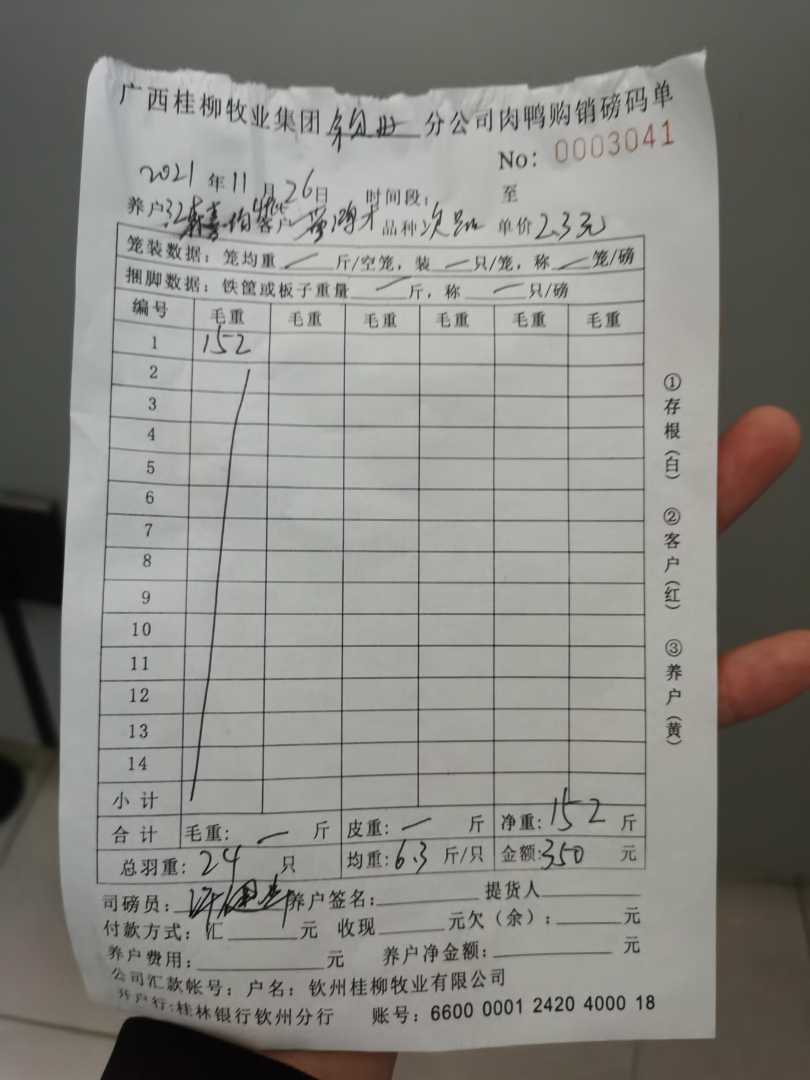 广西桂柳牧业集团 分公司肉鸭购销磅码单
No: 0003041
2021年11月26日 时间段: 至
养户 客户 品种次品 单价2.3元
笼装数据: 笼均重 — 斤/空笼, 装 — 只/笼, 称 — 笼/磅
捆脚数据: 铁筐或板子重量 — 斤, 称 — 只/磅
编号 毛重 毛重 毛重 毛重 毛重 毛重
1 152
2
3
4
5
6
7
8
9
10
11
12
13
14
小计
合计 毛重: — 斤 皮重: — 斤 净重: 152 斤
总羽重: 24 只 均重: 6.3 斤/只 金额: 350 元
司磅员: 养户签名: 提货人
付款方式: 汇 元 收现 元欠(余): 元
养户费用: 元 养户净金额: 元
公司汇款帐号: 户名: 钦州桂柳牧业有限公司
开户行: 桂林银行钦州分行 账号: 6600 0001 2420 4000 18
①存根(白) ②客户(红) ③养户(黄)